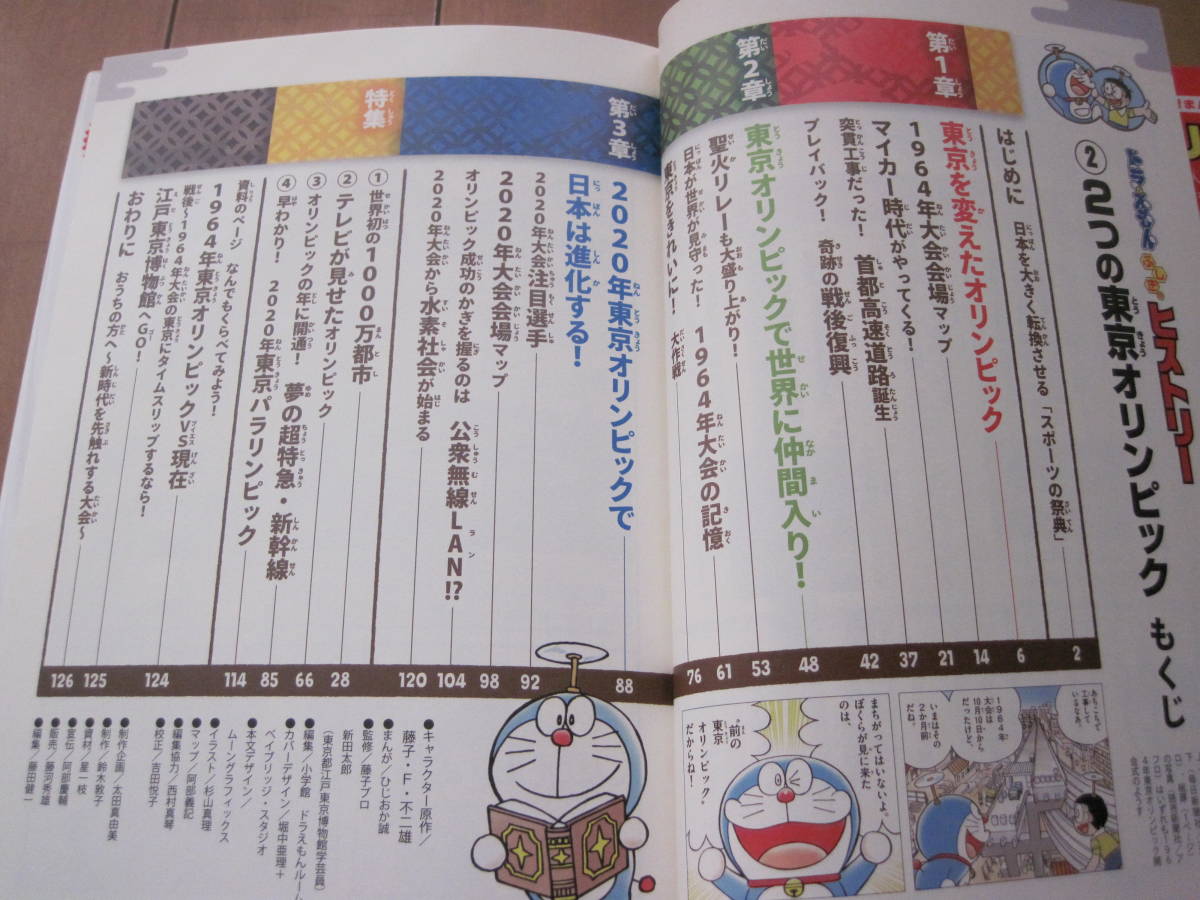 ドラえもん ふしぎ ヒストリー
② 2つの東京オリンピック もくじ
はじめに 日本を大きく転換させる「スポーツの祭典」 2
第1章
東京を変えたオリンピック 6
1964年大会会場マップ 14
マイカー時代がやってくる! 21
突貫工事だった! 首都高速道路誕生 37
プレイバック! 奇跡の戦後復興 42
第2章
東京オリンピックで世界に仲間入り! 48
聖火リレーも大盛り上がり! 53
日本が世界が見守った! 1964年大会の記憶 61
東京をきれいに! 大作戦 76
あちこちで
工事して
いるなあ。
1964年
大会は
10月10日から
だったけど、
いまはその
2か月前
だね。
まちがってはいないよ。
ぼくらが見に来た
のは、
“前の
東京
オリンピック”
だからね!
第3章
2020年東京オリンピックで
日本は進化する! 88
2020年大会注目選手 92
2020年大会会場マップ 98
オリンピック成功のかぎを握るのは 公衆無線LAN!? 104
2020年大会から水素社会が始まる 120
特集
① 世界初の1000万都市 28
② テレビが見せたオリンピック 66
③ オリンピックの年に開通! 夢の超特急・新幹線 85
④ 早わかり! 2020年東京パラリンピック 114
資料のページ なんでもくらべてみよう!
1964年東京オリンピックVS現在 124
戦後~1964年大会の東京にタイムスリップするなら!
江戸東京博物館へGO! 125
おわりに おうちの方へ~新時代を先触れする大会~ 126
●キャラクター原作/
藤子・F・不二雄
●まんが/ひじおか誠
●監修/藤子プロ
新田太郎
(東京都江戸東京博物館学芸員)
●編集/小学館 ドラえもんルーム
●カバーデザイン/堀中亜理+
ベイブリッジ・スタジオ
●本文デザイン/
ムーングラフィックス
●イラスト/杉山真理
●マップ/阿部義記
●編集協力/西村真琴
●校正/吉田悦子
●制作企画/太田真由美
●制作/鈴木敦子
●資材/星一枝
●宣伝/阿部慶輔
●販売/藤河秀雄
●編集/藤田健一